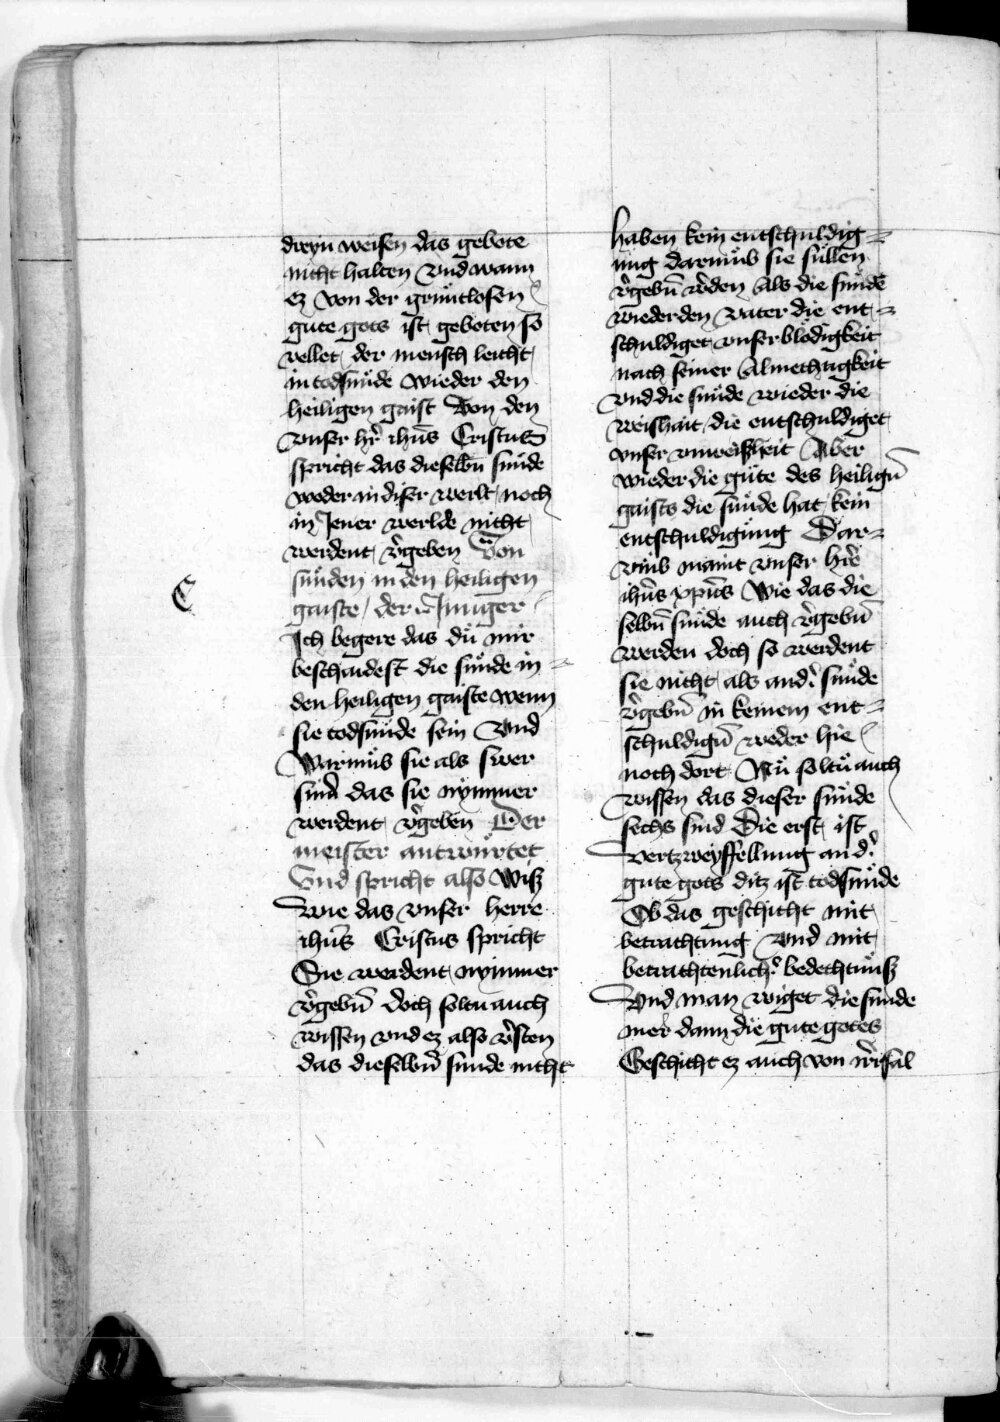 dreyn weisen das gebote
nicht halten Vnd wann
ez von der gruntlosen
gute gots ist geboten so
vellet der mensch leicht
in todsu̇nde wieder den
heiligen gaist Von den
vnser hr̄ ih̄us Cristus
spricht das dieselbn̄ su̇nde
weder in diser werlt noch
in Jener werlde nicht
werdent v̓geben Von
su̇nden in den heiligen
gaiste / der Junger
Ich begere das du̇ mir
beschaidest die su̇nde in
den heiligen gaiste wenn
sie todsu̇nde sein Vnd
Warumb sie als swer
sind das sie nymmer
werdent v̓geben Der
meister antwurtet
Vnd spricht also Wisz
Wie das vnser herre
ih̄us Cristus spricht
Sie werdent nymmer
v̓gebn̄ doch soltu auch
wissen vnd ez also v̓sten
das dieselbn̄ sunde nicht
haben kein entschuldig=
ung darumb sie sullen
v̓gebn̄ w̓den Als die su̇nde
wieder den vater die ent=
schuldiget vnser blodigkeit
nach seiner Almechtigkeit
Vnd die su̇nde wieder die
weishait die entschuldiget
vnser vnweisheit Aber
wieder die gu̇te des heilign̄
gaists die su̇nde hat kein
entschuldigu̇ng Dar=
vmb maint vnser hr̄e
ih̄us xp̄us Wie das die
selbn̄ su̇nde auch v̓gebn̄
werden doch so werdent
sie nicht als and̓ su̇nde
v̓gebn̄ in keinem ent=
schuldign̄ weder hie
noch dort Nu̇ soltu̇ auch
wissen das dieser su̇nde
sechs sind Die erst ist
Vertzweyffellung an d̓
gute gots ditz ist todsu̇nde
Ob das geschicht mit
betrachtung vnd mit
betrachtenlich̓ bedechtnu̇sz
Vnd man wiget die sunde
mer dann die gute gotes
Geschicht ez auch von irr̓sal
C